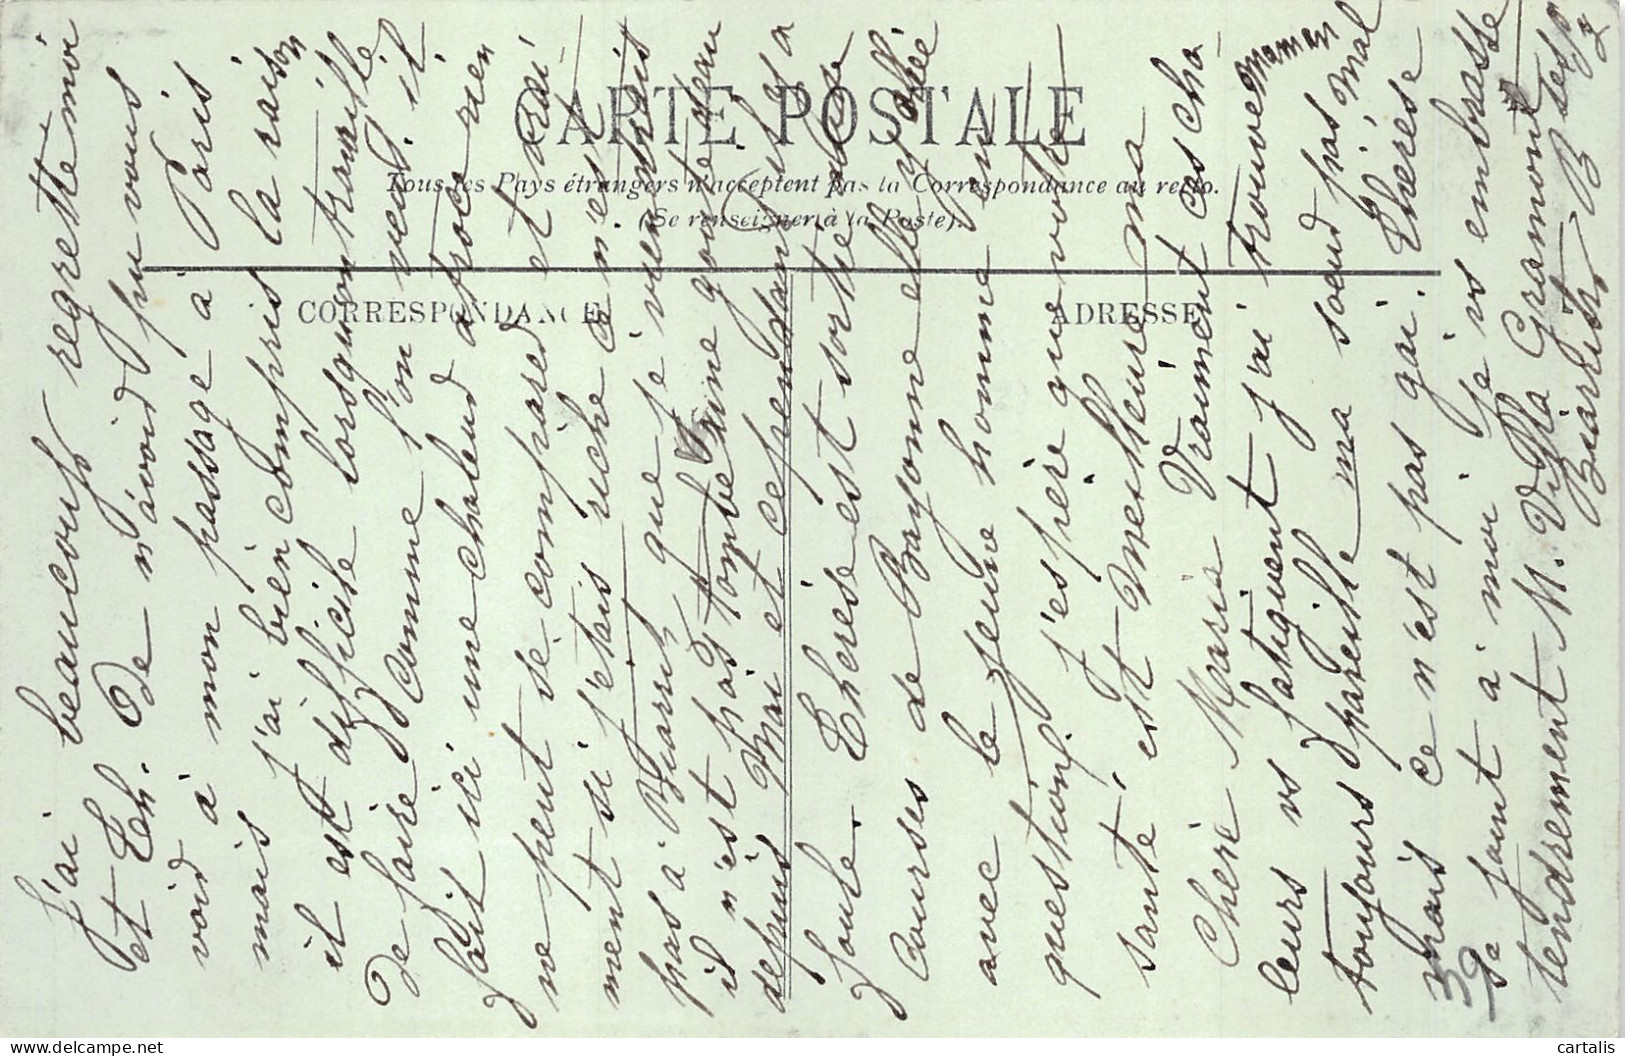 CARTE POSTALE
Tous les Pays étrangers n'acceptent pas la Correspondance au recto.
(Se renseigner à la Poste).
CORRESPONDANCE
ADRESSE
J'ai beaucoup regretté moi
et Th. De n'avoir pu vous
voir à mon passage à Paris
mais j'ai bien compris la raison
il est difficile lorsqu'on travaille
De faire comme l'on veut. il
fait ici une chaleur atroce rien
ne peut se comparer et vrai-
ment si j'étais riche ce n'est
pas à Biarritz que je viendrais
il n'est pas tombé une goutte d'eau
depuis Mai et cependant il y a
foule. Thérèse est sortie
Courses de Bayonne elle y
avec le jeune homme en
question. J'espère que votre
santé est meilleure ma
Chère Marie Vraiment ces cha-
leurs vs fatiguent j'ai trouvé Maman
toujours pareille ma soeur pas mal
mais ce n'est pas gai. Thérèse
se joint à moi je vs embrasse
tendrement M. Villa Gramont
Biarritz B ses P
39